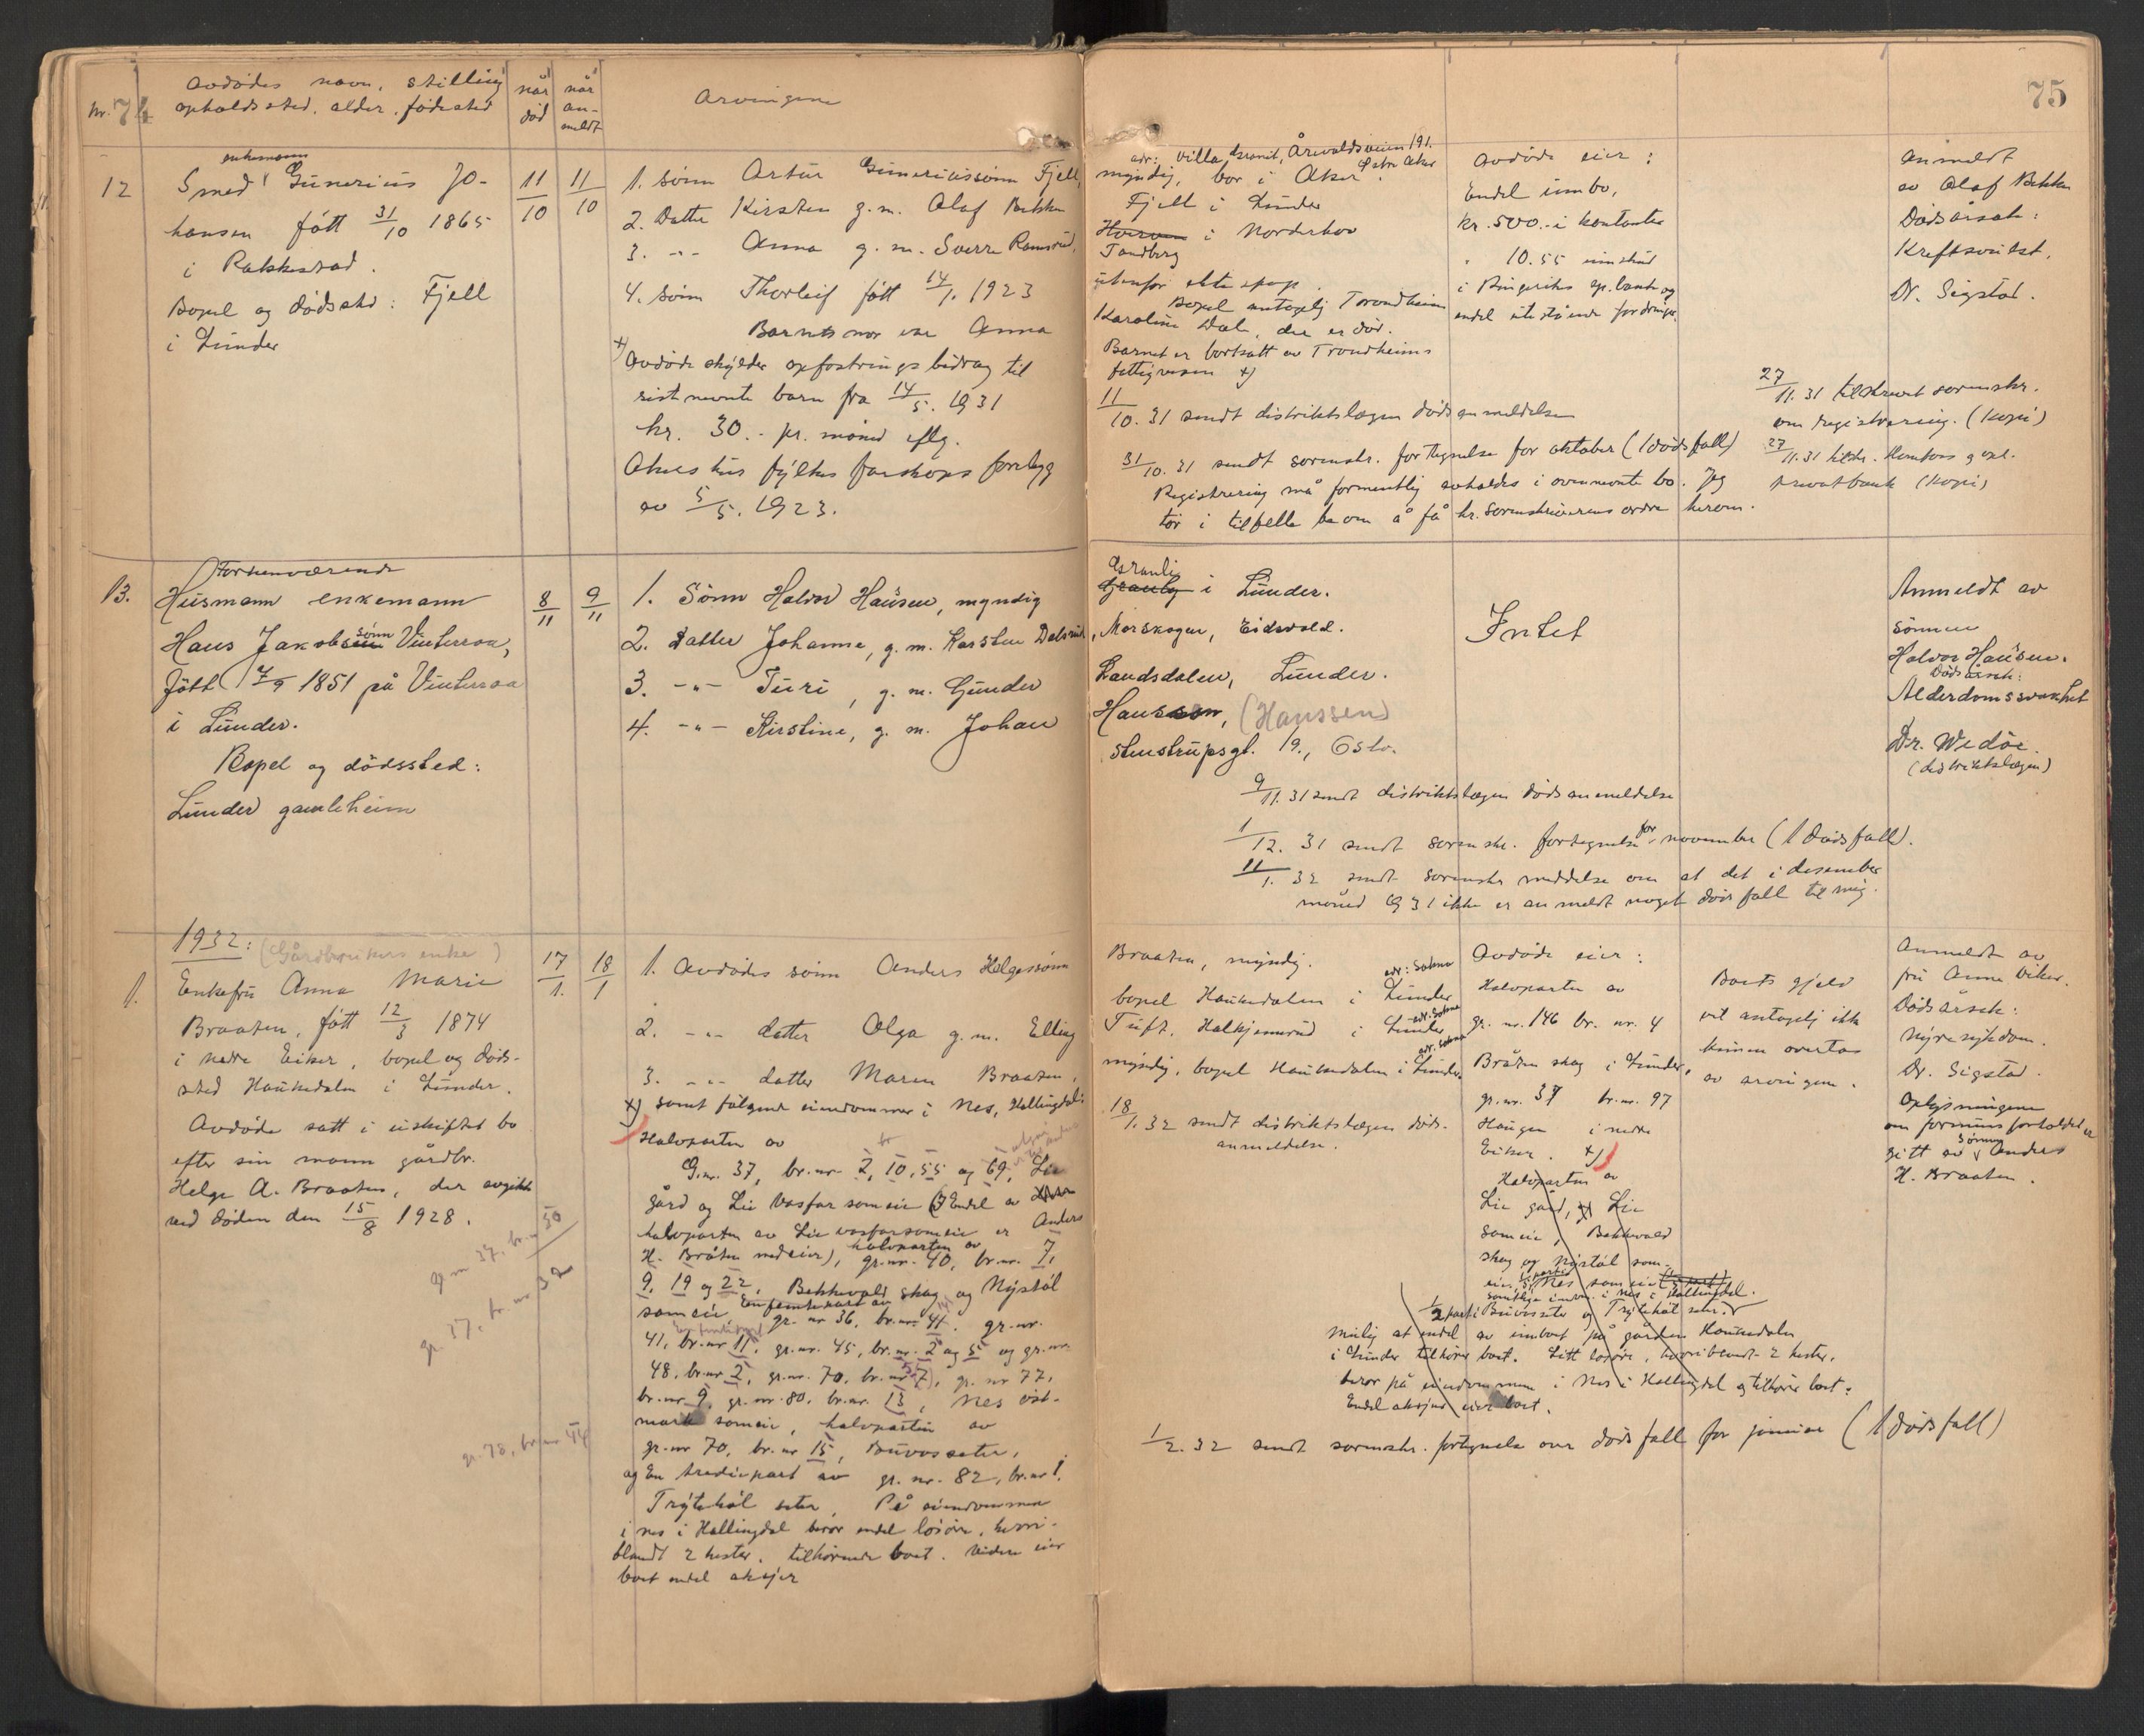 Nr. 74
Avdødes navn, stilling
opholdssted, alder, fødested
når død
når an-
meldt
Arvingene
75
12
enkemann
Smed Gunerius Jo-
hansen født 31/10 1865
i Rakkestad.
Bopel og dødssted: Fjell
i Lunder
11/10
11/10
1. sønn Artur Guneriussønn Fjell,
2. Datter Kirsten g.m. Olaf Bekken
3. -"- Anna g.m. Sverre Ramsrud,
4. sønn Thorleif født 14/1. 1923
Barnets mor er Anna
x) Avdøde skylder opfostringsbidrag til
sistnevnte barn fra 14/5. 1931
kr. 30.- pr. måned iflg.
Akershus fylkes farskaps forelegg
av 5/5. 1923.
adr: Villa Granit, Årvoldsveien 191.
Østre Aker
myndig, bor i Aker.
Fjell i Lunder
Hverven i Norderhov
Tandberg
utenfor ekteskap.
Bopel antagelig Trondheim
Karoline Dal, der er død.
Barnet er bortsatt av Trondheims
fattigvesen x)
11/10. 31 sendt distriktslægen dødsanmeldelse
31/10. 31 sendt sorenskr. fortegnelse for oktober (1 dødsfall)
Registrering må formentlig avholdes i ovennevnte bo. Jeg
tør i tilfelle be om å få hr. sorenskriverens ordre herom.
Avdøde eier:
Endel innbo,
kr. 500.- i kontanter
" 10.55 innskud
i Ringeriks sp.bank og
endel utestående fordringer.
27/11. 31 tilskrevet sorenskr.
om registrering. (Kopi)
27/11. 31 tilskr. Honefoss og opl.
privatbank (Kopi)
Anmeldt
av Olaf Bekken
Dødsårsak:
Kreftsvulst.
Dr. Sigstad.
13.
Forhenværende
Husmann enkemann
Hans Jakobsen sønn Vinterroa,
født 7/9 1851 på Vinterroa
i Lunder.
Bopel og dødssted:
Lunder gamleheim
8/11
9/11
1. Sønn Halvor Hansen, myndig
2. Datter Johanne, g.m. Karsten Dalsrud
3. -"- Turi, g.m. Gunder
4. -"- Kirstine, g.m. Johan
Granli
Granly i Lunder.
, Morskogen, Eidsvold.
Landsdalen, Lunder.
Hansson, (Hanssen)
Stenstrupsgt. 19., Oslo.
9/11. 31 sendt distriktslægen dødsanmeldelse
1/12. 31 sendt sorenskr. fortegnelse for november (1 dødsfall).
11/1. 32 sendt sorenskr meddelse om at det i desember
måned 1931 ikke er anmeldt noget dødsfall til mig.
Intet
Anmeldt av
sønnen
Halvor Hansen.
Dødsårsak:
Alderdomssvakhet
Dr. Wedøe.
(distriktslægen)
1932: (Gårdbrukers enke)
1.
Enkefru Anna Marie
Braaten, født 12/3 1874
i nedre Eiker, bopel og døds-
sted Haukedalen i Lunder.
Avdøde satt i uskiftet bo
efter sin mann gårdbr.
Helge A. Braaten, der avgikk
ved døden den 15/8 1928.
g.nr 37, br.nr 50
gr. 37, br. nr 32
gr. 78, br.nr 44
17/1.
18/1
1. Avdødes sønn Anders Helgessønn
2. -"- datter Olga g.m. Elling
3. -"- datter Maren Braaten,
x) samt følgende eiendommer i Nes, Hallingdal:
Halvparten av
G.nr. 37, br.nr 2, 10, 55 og 69, Lie
gård og Lie Vasfar someie (Endel av
halvparten av Lie vasfarsomeie er Anders
H. Bråten medeier), halvparten av gr.nr. 40, br.nr. 7,
9, 19 og 22, Bekkevold skog og Nystøl
someie, En femtepart av gr. nr 36, br.nr. 41. gr.nr.
41, br.nr 11, gr.nr. 45, br.nr. 2 og 5 og gr.nr
48, br.nr 2, gr.nr. 70, br.nr 7, gr. nr 77,
br.nr 9, gr.nr. 80, br.nr. 13, Nes øst-
mark someie, halvparten av
gr.nr 70, br.nr 15, Buvasseter,
og En tredjepart av gr. nr. 82, br.nr 1.
Trytehøl seter. På eiendommene
i Nes i Hallingdal beror endel løsøre, hvori-
blandt 2 hester, tilhørende boet. Videre eier
boet endel aksjer
Braaten, myndig.
adr: Sokna
bopel Haukedalen i Lunder
adr. Sokna
Tuft, Halkjemsrud i Lunder
adr. Sokna
myndig, bopel Haukedalen i Lunder.
18/1. 32 sendt distriktslægen døds-
anmeldelse.
Avdøde eier:
Halvparten av
gr. nr. 146 br. nr. 4
Bråten skog i Lunder,
gr.nr. 37 br.nr. 97
Haugen i nedre
Eiker. x)
Halvparten av
Lie gård, Lie
someie, Bekkevold
skog og Nystøl som-
eie, Nes someie
samtlige eiend. i Nes i Hallingdal.
1/2 part i Buvasseter og Trytehøl seter.
Mulig at endel av innboet på gården Haukedalen
i Lunder tilhører boet. Litt løsøre, hvoriblandt 2 hester,
beror på eiendommene i Nes i Hallingdal og tilhører boet.
Endel aksjer eier boet.
1/2. 32 sendt sorenskr. fortegnelse over dødsfall for januar (1 dødsfall)
Boets gjeld
vil antagelig ikke
kunne overtas
av arvingene.
Anmeldt av
fru Anne Viker.
Dødsårsak:
Nyresykdom.
Dr. Sigstad.
Oplysningene
om formuesforholdet er
gitt av sønnen Anders
H. Braaten.